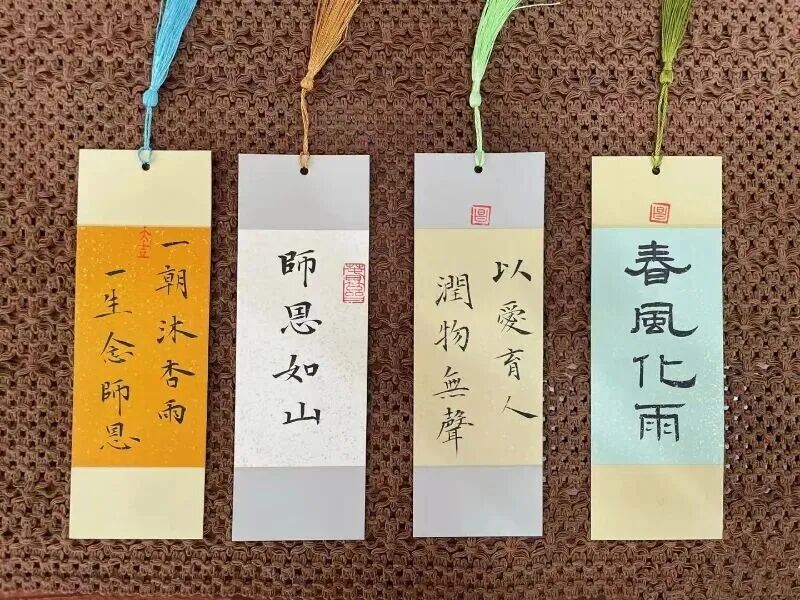 一朝沐杏雨
一生念師恩
師恩如山
以愛育人
潤物無聲
春風化雨